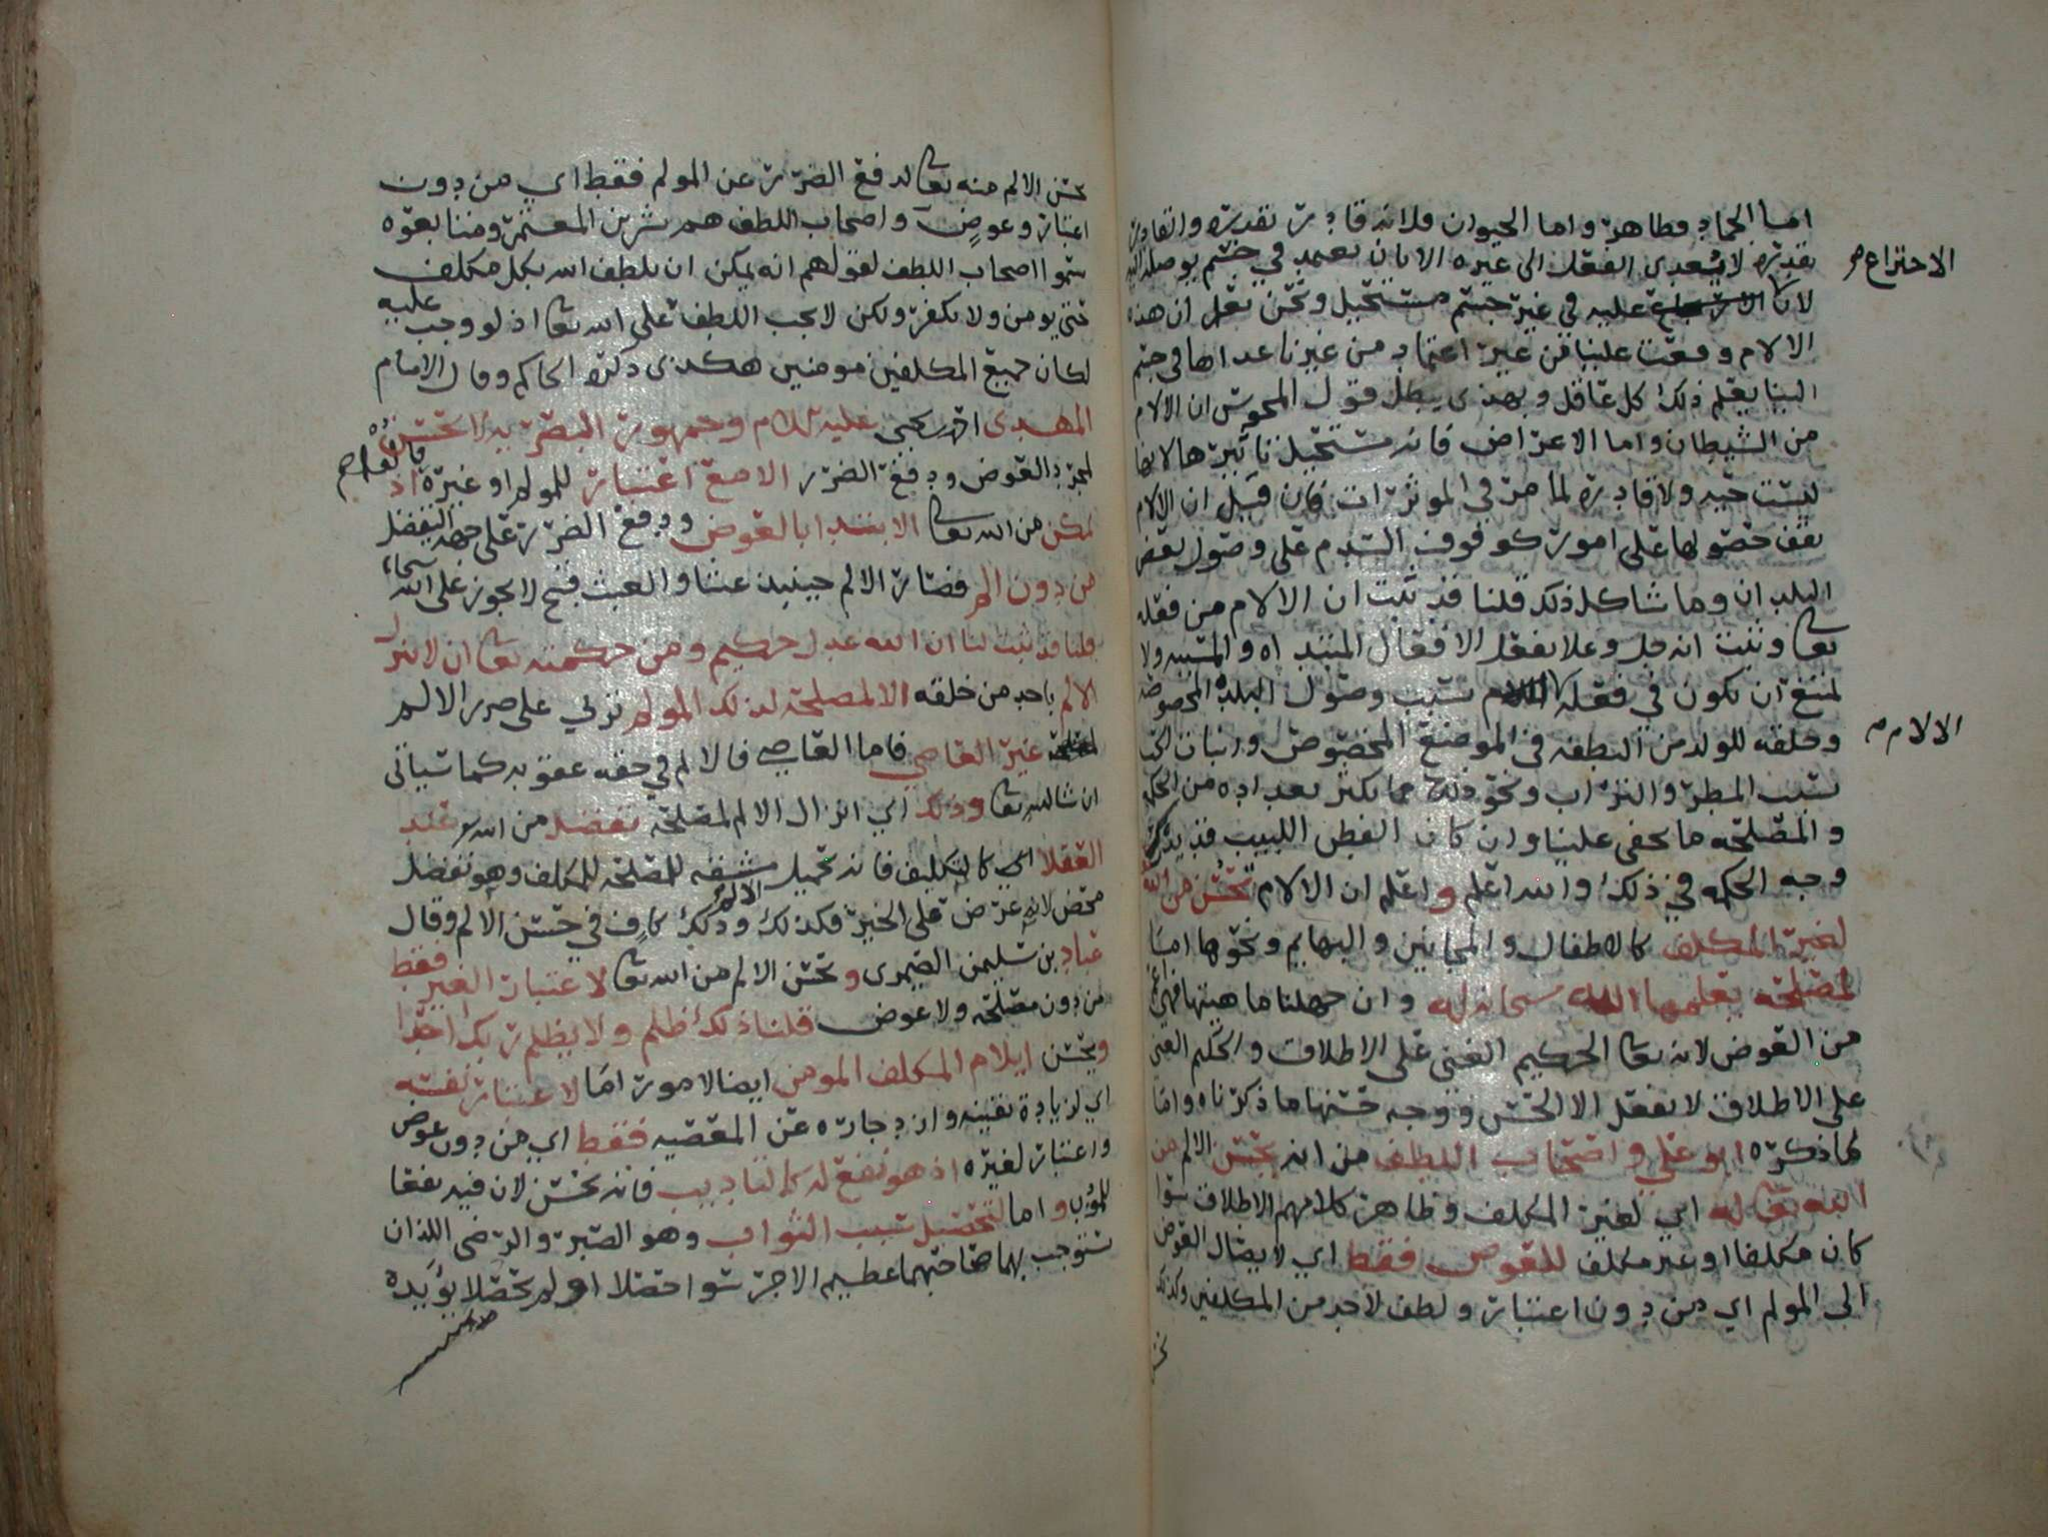 اما الجماد فظاهر واما الحيوان فلانه قادر بقدره والقادر
بقدره لا يعدي الفعل الى غيره الا بان يعتمد في جسم يوصله اليه
لان الاختراع عليه في غير جسم مستحيل ونحن نعلم ان هذه
الالام وقعت علينا من غير اعتماد من غيرنا عداها في جسم
الينا يعلم ذلك كل عاقل وبهذى يبطل قول المجوس ان الالام
من الشيطان واما الاعراض فانه مستحيل تاثيرها لانها
ليست حيه ولا قادره لما مر في الموثرات فان قيل ان الالام
يقف حصولها على امور كوقوف السدم على وصول بعض
البلدان وما شاكل ذلك قلنا قد ثبت ان الالام من فعله
تعالى وثبت انه جل وعلا يفعل الافعال المبتداه والمسببه ولا
يمتنع ان يكون في فعله الالام بسبب وصول البلده المخصوصه
وخلقه للولد من النطفه في الموضع المخصوص وانبات الحب
بسبب المطر والتراب ونحو ذلك مما يكثر تعداده من الحكم
والمصلحه ما يخفى علينا وان كان الفطن اللبيب قد يدرك
وجه الحكمه في ذلك والله اعلم واعلم ان الالام تحسن من الله
لغير المكلف كالاطفال والمجانين والبهايم ونحوها اما
لمصلحه يعلمها الله سبحانه له وان جهلنا ماهيتها فهي
من العوض لانه تعالى الحكيم الغني على الاطلاق والحكيم الغني
على الاطلاق لا يفعل الا الحسن ووجه حسنها ما ذكرناه واما
لما ذكره ابو علي واصحاب اللطف من انه يحسن الالم من
الله تعالى له اي لغير المكلف وظاهر كلامهم الاطلاق سوا
كان مكلفا او غير مكلف للعوض فقط اي لايصال العوض
الى المولم اي من دون اعتبار ولطف لاحد من المكلفين وكذلك
الاختراع صح
الالام صح
يحسن الالم منه تعالى لدفع الضرر عن المولم فقط اي من دون
اعتبار وعوض واصحاب اللطف هم بشر بن المعتمر ومتابعوه
سموا اصحاب اللطف لقولهم انه يمكن ان يلطف الله بكل مكلف
حتى يومن ولا يكفر ولكن لا يجب اللطف على الله تعالى اذ لو وجب عليه
لكان جميع المكلفين مومنين هكذى ذكره الحاكم وقال الامام
المهدي احمد بن يحيى عليه السلام وجمهور البصريه لا يحسن
لمجرد العوض ودفع الضرر الا مع اعتبار للمولم او غيره اذ
يمكن من الله تعالى الابتدا بالعوض ودفع الضرر على جهه التفضل
من دون الم فصار الالم حينيذ عبثا والعبث قبيح لا يجوز على الله سبحانه
قلنا قد ثبت لنا ان الله عدل حكيم ومن حكمته تعالى ان لا ينزل
الالم باحد من خلقه الا لمصلحه لذلك المولم تربي على ضرر الالم
لمصلحه غير العاصي فاما العاصي فالالم في حقه عقوبه كما سياتي
ان شا الله تعالى وذلك اي انزال الالم لمصلحه تفضل من الله عند
العقلا اي كالتكليف فانه تحميل مشقه لمصلحه للمكلف وهو تفضل
محض لانه عرض على الخير فكذلك الالم وذلك كاف في حسن الالم وقال
عباد بن سليمن الصيمري ويحسن الالم من الله تعالى لاعتبار الغير فقط
من دون مصلحه ولا عوض قلنا ذلك ظلم ولا يظلم ربك احدا
ويحسن ايلام المكلف المومن ايضا لامور اما لاعتبار نفسه
اي لزيادة يقينه وازدجاره عن المعصيه فقط اي من دون عوض
واعتبار لغيره اذ هو نفع له كالتاديب فانه يحسن لان فيه نفعا
للمودب واما لتحصيل سبب الثواب وهو الصبر والرضى اللذان
يستوجب بهما صاحبهما عظيم الاجر سوا حصلا او لم يحصلا يويده